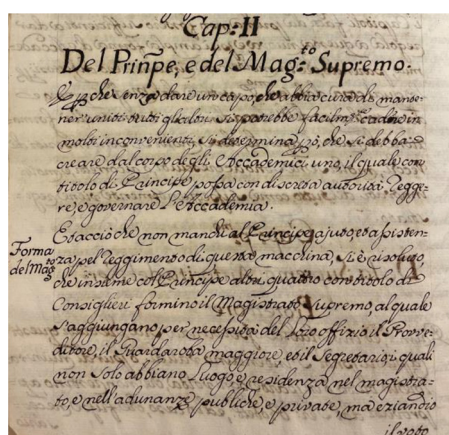 Cap: II
Del Prinpe, e del Mag:to Supremo.
E pche senza dare un capo, che abbia cura di mante-
ner uniti tutti gli altri si potrebbe facilm:te cadere in
molti inconvenienti, si determina pò, che si debba
creare dal corpo degli Accademici uno, il quale con
titolo di Principe possa con discreta autorità Regge-
re, e governare l'Accademia.
Forma
del Mag:
E acciò che non manchi al Principe ajuto et assisten-
za pel Reggimento di questa macchina, si è risoluto,
che insieme col Principe altri quattro con titolo di
Consiglieri formino il Magistrato Supremo, al quale
s'aggiungano per necessità del loro offizio il Prove-
ditore, il Guardaroba maggiore, et il Segretario: quali
non solo abbiano luogo, e residenza nel magistra-
to, e nell'adunanze publiche, e private, ma eziandio
il voto